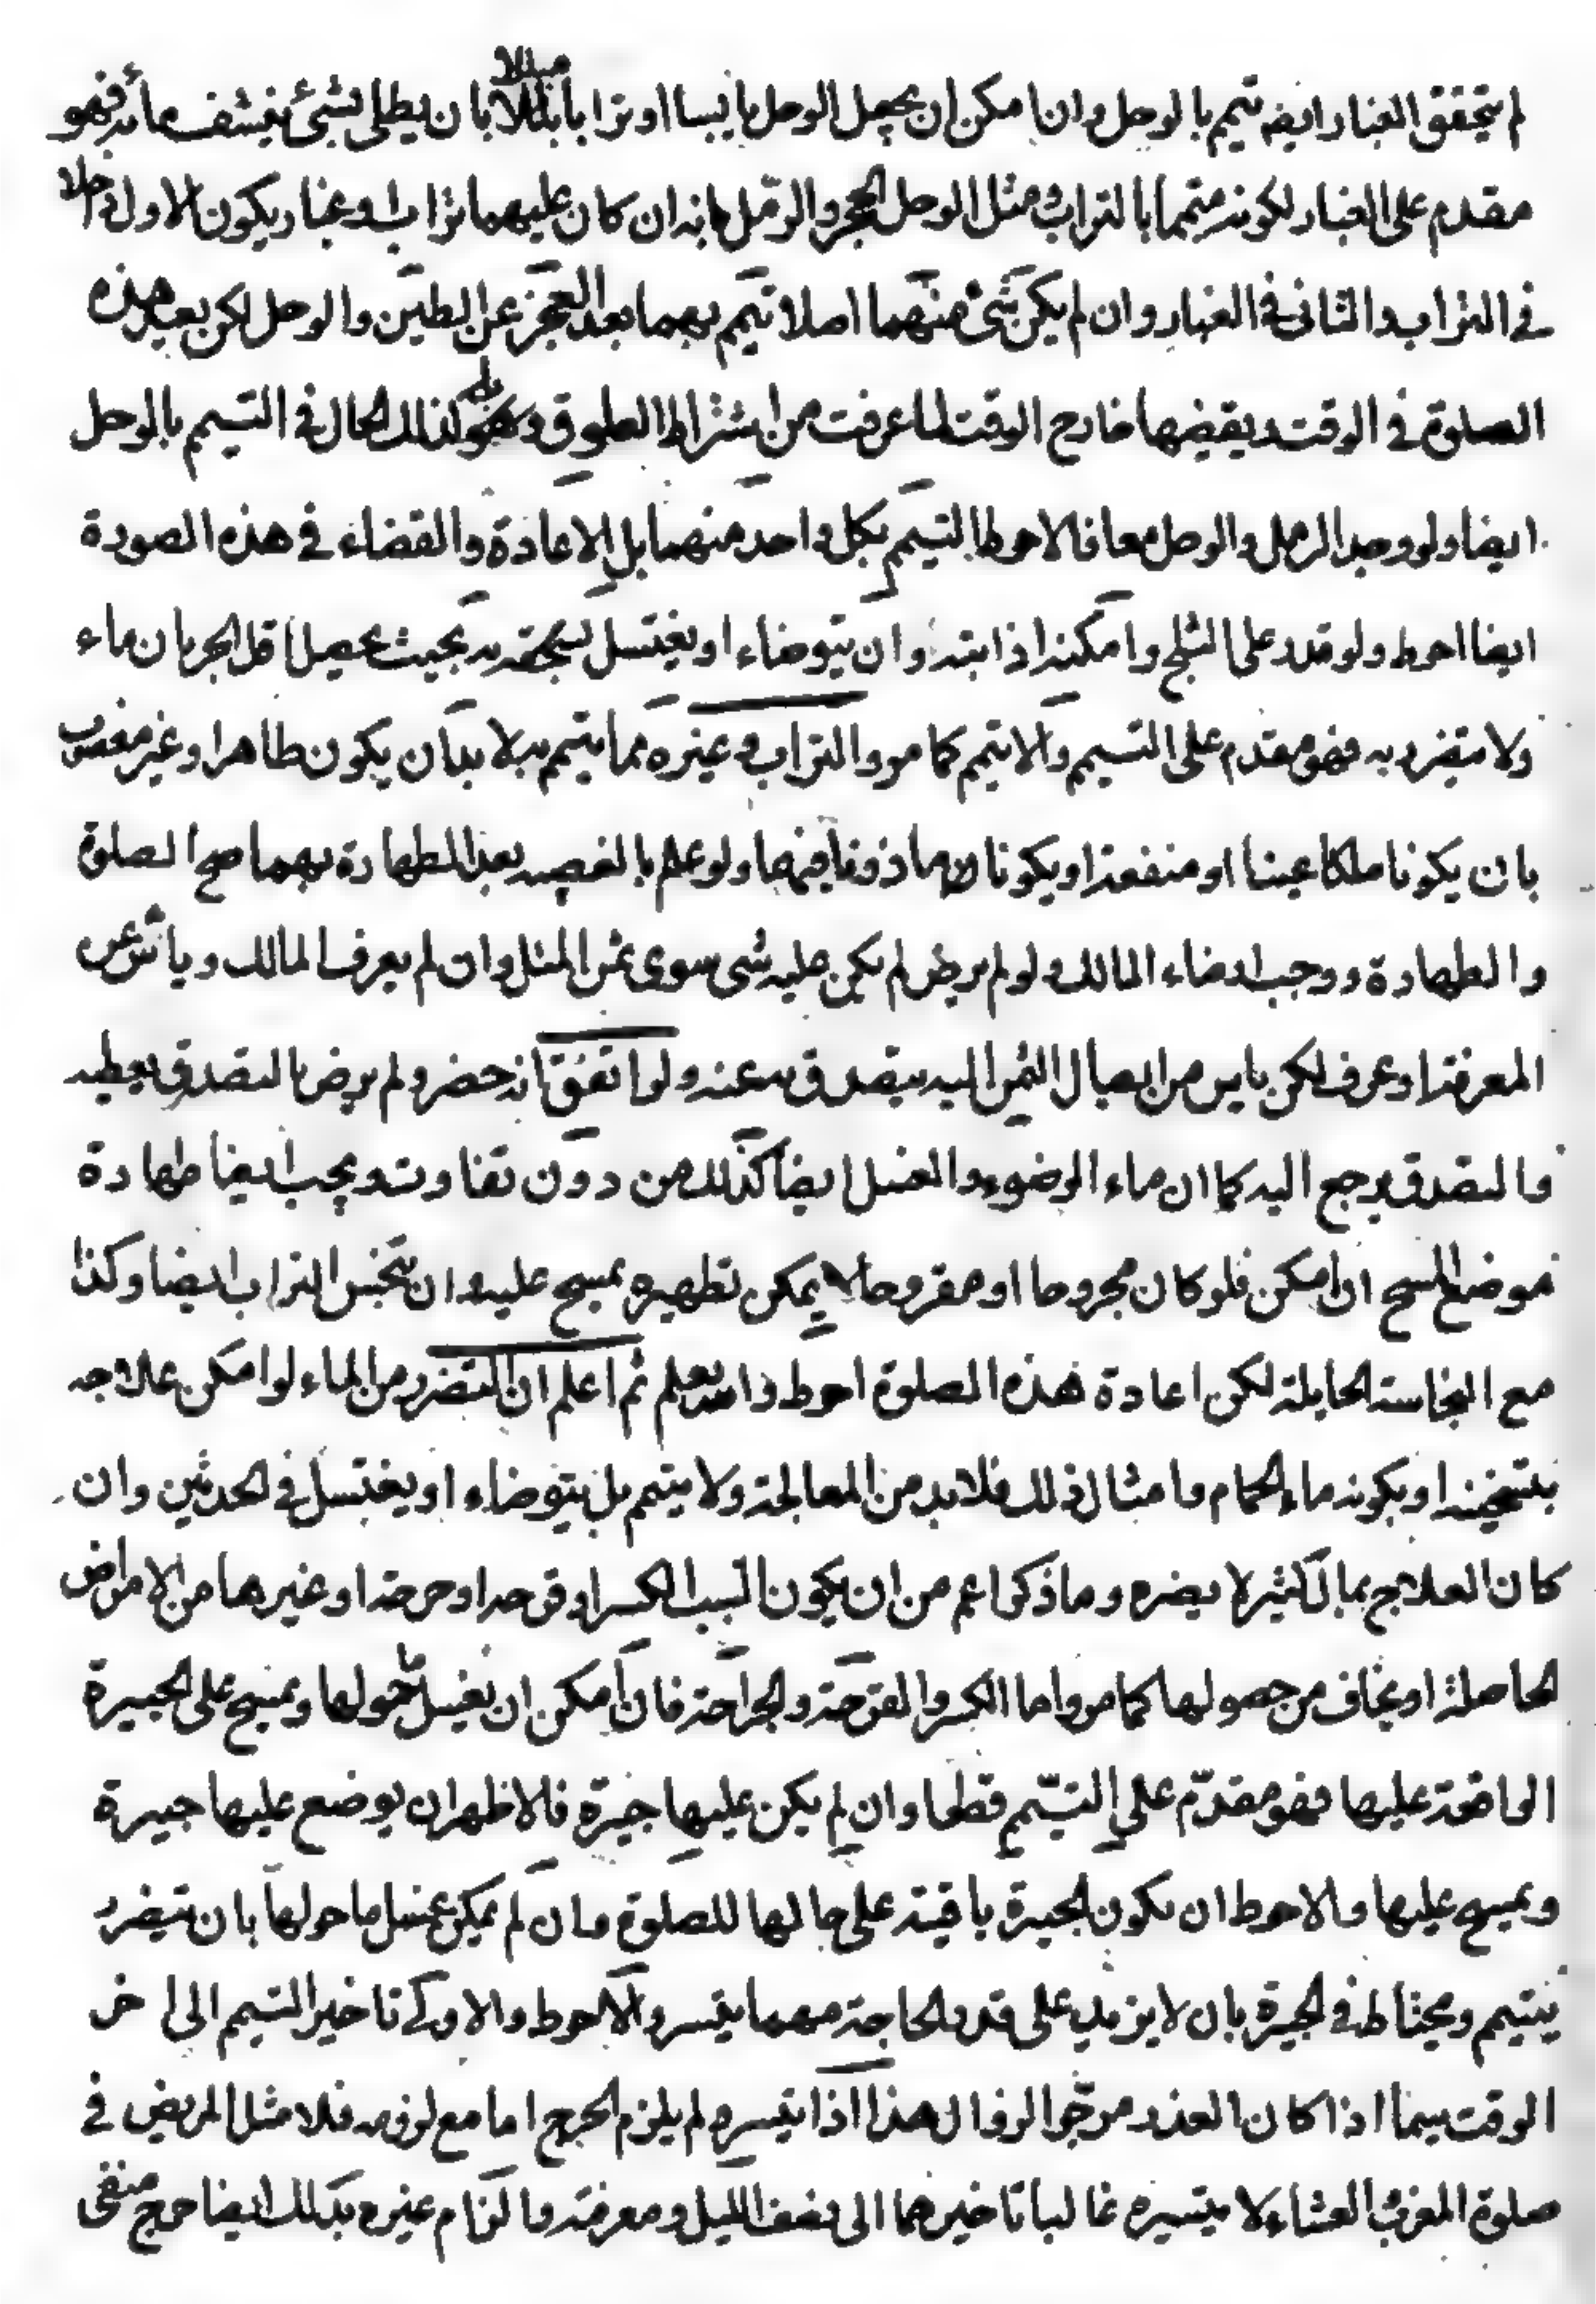 لم يتحقق الغبار ايضا تيمم بالوحل وان امكن ان يجعل الوحل يابسا او ترابا مثلا بان يطلى بشئ ينشف مائه فهو
مقدم على الغبار لكونه متيمما بالتراب ومثل الوحل الحجر والرمل فانه ان كان عليهما تراب او غبار ويكون الاول داخلا
في التراب والثاني في الغبار وان لم يكن شئ منهما اصلا تيمم بهما بعد العجز عن الطين والوحل لكن يعيد هذه
الصلوة في الوقت ويقضيها خارج الوقت لما عرفت من اشتراط العلوق بل كذلك الحال في التيمم بالوحل
ايضا ولو وجد الرمل والوحل معا فالاحوط التيمم بكل واحد منهما بل الاعادة والقضاء في هذه الصورة
ايضا احوط ولو قدر على الثلج وامكنه اذابته وان يتوضاء او يغتسل بحيث يحصل اقل الجريان ماء
ولا يتضرر به فهو مقدم على التيمم والا تيمم كما مر والتراب وغيره مما يتيمم به لا بد ان يكون طاهرا وغير مغصوب
بان يكونا ملكا عينا او منفعة او يكونا ماذونا فيهما ولو علم بالغصب بعد الطهارة بهما صح الصلوة
والطهارة ووجب ارضاء المالك ولو لم يرض لم يكن عليه شى سوى ثمن المثل وان لم يعرف المالك ويأس عن
المعرفة او عرف لكن يايس من ايصال الثمن اليه يتصدق به عنه ولو اتفق انه حضر ولم يرض بالتصدق يعطيه
فالتصدق يرجع اليه كما ان ماء الوضوء والغسل ايضا كذلك من دون تفاوت ويجب ايضا طهارة
موضع المسح ان امكن فلو كان مجروحا او مقروحا لا يمكن تطهيره يمسح عليه وان يتنجس التراب ايضا وكذا
مع النجاسة الحايلة لكن اعادة هذه الصلوة احوط والله يعلم ثم اعلم ان التضرر من الماء لو امكن علاجه
بتسخينه او بكونه ماء الحمام وامثال ذلك فلا بد من المعالجة ولا يتيمم بل يتوضاء او يغتسل في الحدثين وان
كان العلاج بمال كثير لا يضره وما ذكر اعم من ان يكون السبب الكسر او قرحة او جرحة او غيرها من الامراض
الحاصلة او يخاف من حصولها كما مر واما الكسر والقرحة والجراحة فان امكن ان يغسل ما حولها ويمسح على الجبيرة
الواقعة عليها فهو مقدّم على التيمّم قطعا وان لم يكن عليها جبيرة فالاظهر ان يوضع عليها جبيرة
ويمسح عليها والاحوط ان يكون الجبيرة باقية على حالها للصلوة وان لم يمكن غسل ما حولها بان تيضرر
يتيمم ويحتاط في الجبيرة بان لا يزيد على قدر الحاجة مهما يتيسر والاحوط والاولى تاخير التيمم الى اخر
الوقت سيما اذا كان العذر مرجّو الزوال هذا اذا تيسر ولم يلزم الحرج اما مع لزومه فلا مثل المريض في
صلوة المغرب والعشاء لا يتيسره غالبا تاخيرهما الى نصف الليل ومعرفته والزام غيره بذلك ايضا حرج منفى